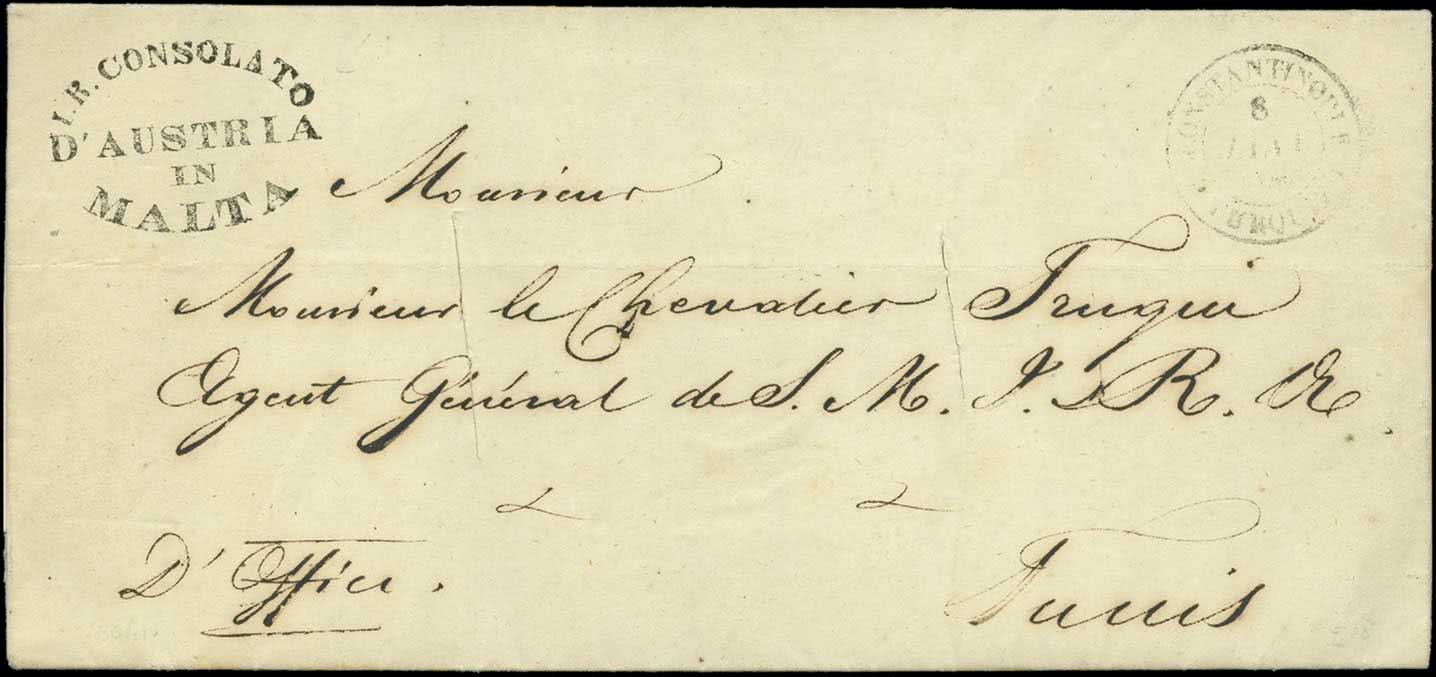 I. R. CONSOLATO
D'AUSTRIA
IN
MALTA
CONSTANTINOPLE
8
Monsieur
Monsieur le Chevalier Truqui
Agent Général de S. M. I. R. A
D'Office.
Tunis